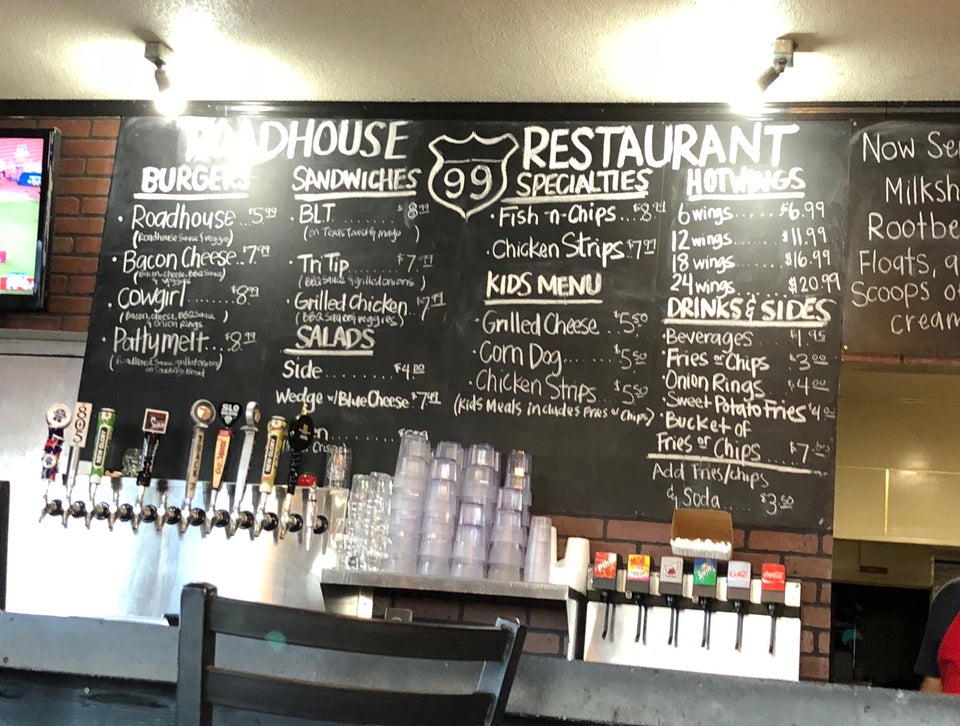 ROADHOUSE 99 RESTAURANT
BURGERS
Roadhouse..$5.99
(Roadhouse Sauce & veggies)
Bacon Cheese..7.99
(Bacon, Cheese, BBQ Sauce
& veggies)
Cowgirl......$8.99
(Bacon, cheese, BBQ Sauce
& Onion Rings)
Patty melt..$8.99
SANDWICHES
BLT.........$8.99
(on Texas Toast & mayo)
Tri Tip........$7.99
(BBQ Sauce & grilled onions)
Grilled Chicken $7.99
(BBQ Sauce & veggies)
SALADS
Side..........$4.00
Wedge w/Blue Cheese $7.49
SPECIALTIES
Fish 'n-Chips...$8.99
Chicken Strips $7.99
KIDS MENU
Grilled Cheese $5.50
Corn Dog.......$5.50
Chicken Strips $5.50
(kids Meals includes Fries or Chips)
HOTWINGS
6 wings......$6.99
12 wings.......$11.99
18 wings.......$16.99
24 wings.......$20.99
DRINKS & SIDES
Beverages $1.95
Fries or Chips $3.00
Onion Rings $4.00
Sweet Potato Fries
Bucket of
Fries or Chips $7
Add Fries/chips
& Soda $3.50
Now
Milksh
Rootbe
Floats, a
Scoops o
cream
SLO
Coke
Coca-Cola